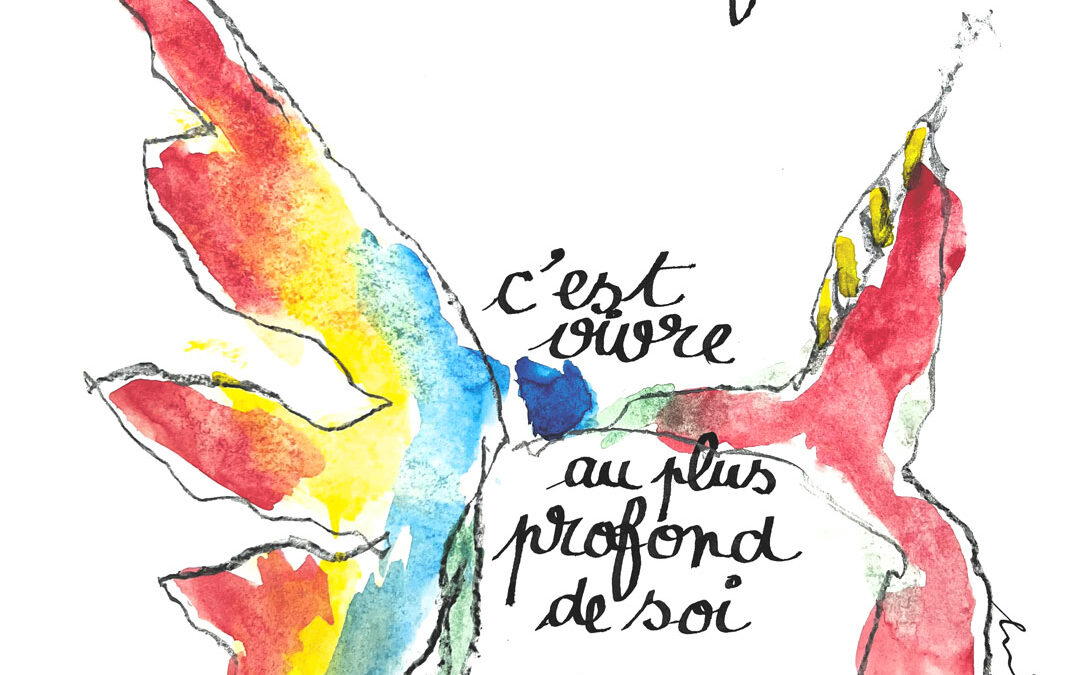 c'est
vivre
au plus
profond
de soi